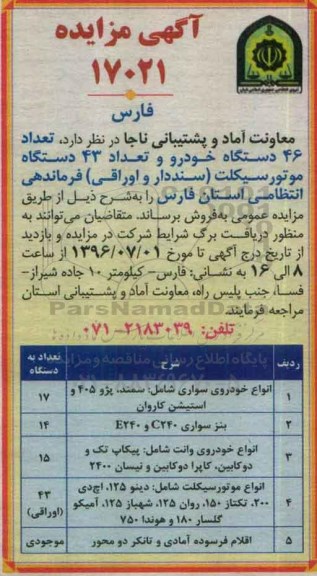 آگهی مزایده
۱۷۰۲۱
فارس
معاونت آماد و پشتیبانی ناجا در نظر دارد، تعداد
۴۶ دستگاه خودرو و تعداد ۴۳ دستگاه
موتورسیکلت (سنددار و اوراقی) فرماندهی
انتظامی استان فارس را به‌شرح ذیل از طریق
مزایده عمومی به‌فروش برساند. متقاضیان می‌توانند به
منظور دریافت برگ شرایط شرکت در مزایده و بازدید
از تاریخ درج آگهی تا مورخ ۱۳۹۶/۰۷/۰۱ از ساعت
۸ الی ۱۶ به نشانی: فارس- کیلومتر ۱۰ جاده شیراز-
فسا، جنب پلیس راه، معاونت آماد و پشتیبانی استان
مراجعه فرمایند.
ParsNamadData
تلفن: ۲۱۸۳۰۳۹-۰۷۱
پایگاه اطلاع رسانی مناقصه و مزایده
ردیف شرح تعداد به دستگاه
۱ انواع خودروی سواری شامل: سمند، پژو ۴۰۵ و
استیشن کاروان ۱۷
۲ بنز سواری C۲۴۰ و E۲۴۰ ۱۴
۳ انواع خودروی وانت شامل: پیکاپ تک و
دوکابین، کاپرا دوکابین و نیسان ۲۴۰۰ ۱۵
۴ انواع موتورسیکلت شامل: دینو ۱۲۵، اچ‌دی
۲۰۰، تکتاز ۱۵۰، روان ۱۲۵، شهباز ۱۲۵، آمیکو
گلسار ۱۸۰ و هوندا ۷۵۰ ۴۳ (اوراقی)
۵ اقلام فرسوده آمادی و تانکر دو محور موجودی